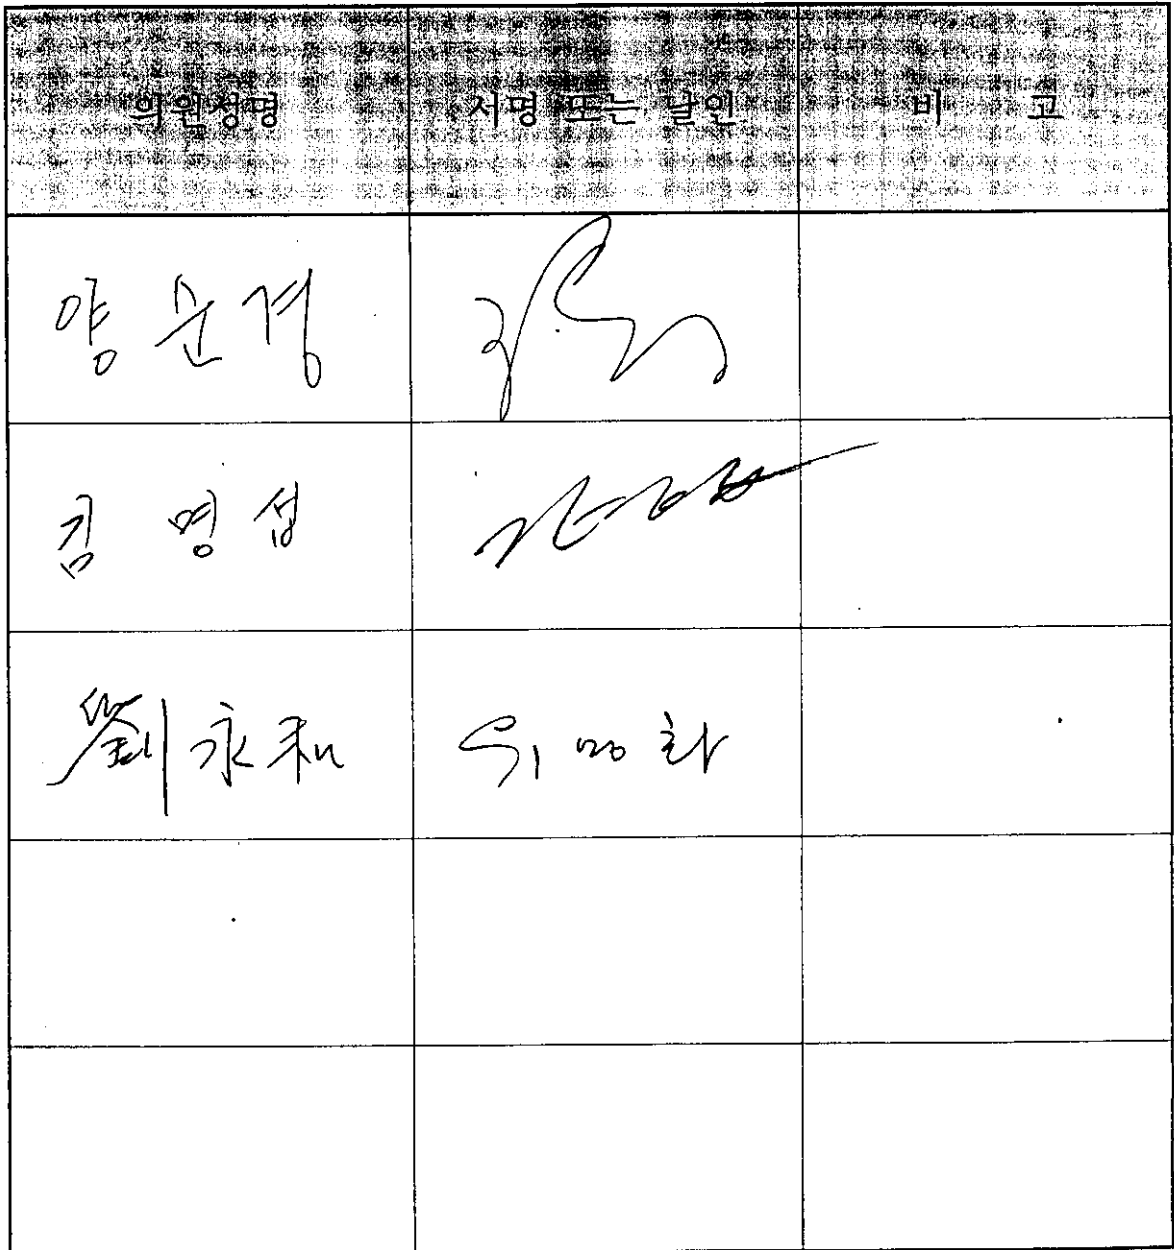 의원성명 서명 또는 날인 비 고
양문경
김 명 섭
劉永和 유영화